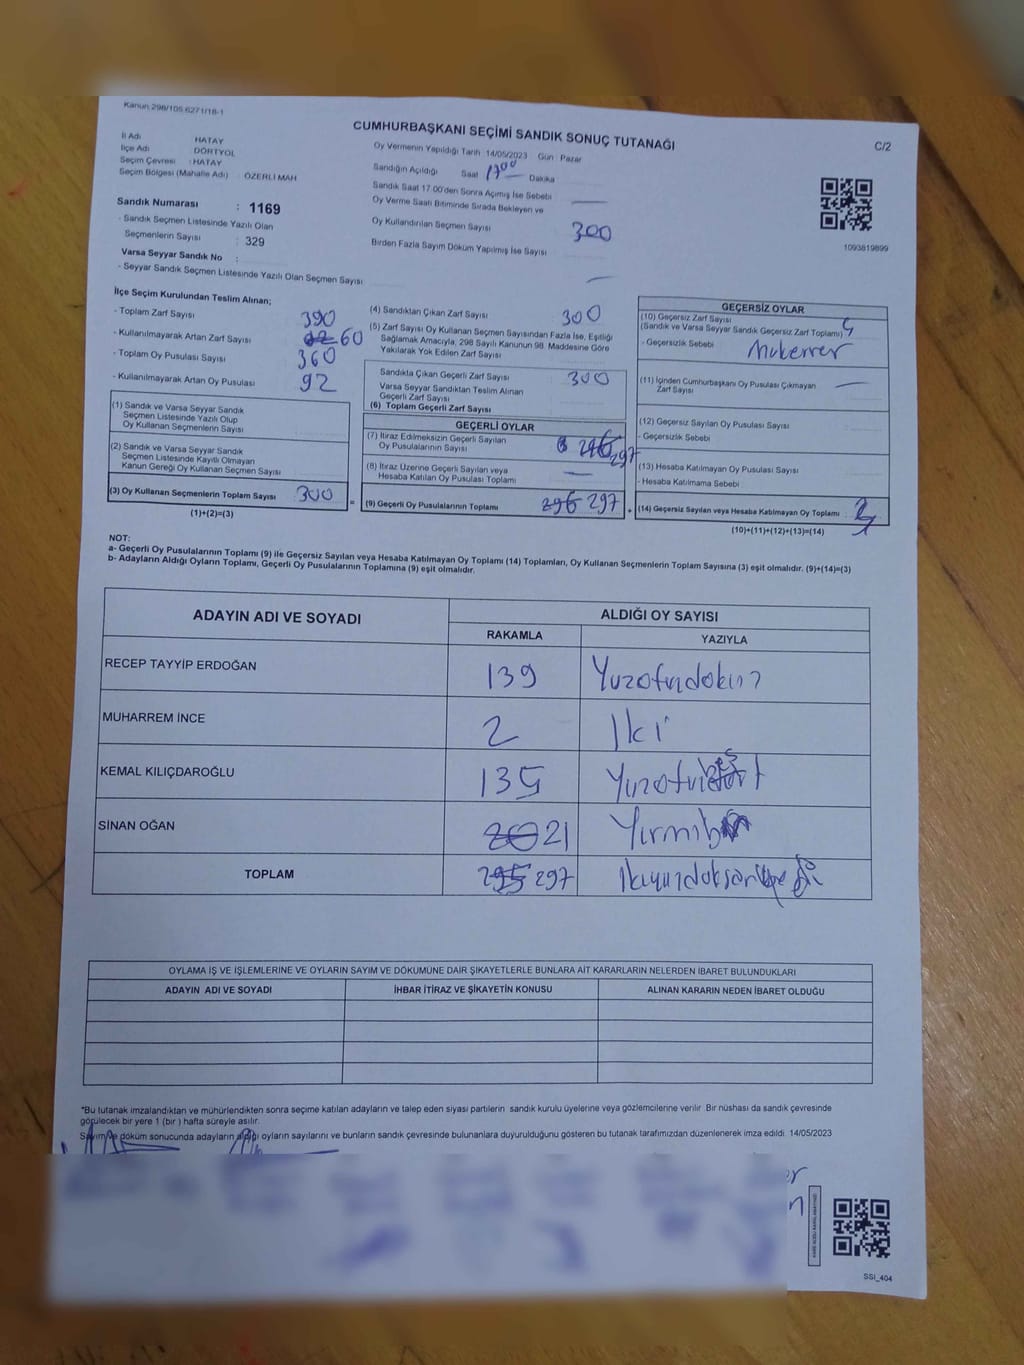 Kanun 298/105 6271/18-1
CUMHURBAŞKANI SEÇİMİ SANDIK SONUÇ TUTANAĞI
C/2
İl Adı HATAY
İlçe Adı DÖRTYOL
Seçim Çevresi : HATAY
Seçim Bölgesi (Mahalle Adı) : ÖZERLİ MAH
Sandık Numarası : 1169
- Sandık Seçmen Listesinde Yazılı Olan
Seçmenlerin Sayısı : 329
Varsa Seyyar Sandık No :
- Seyyar Sandık Seçmen Listesinde Yazılı Olan Seçmen Sayısı
Oy Vermenin Yapıldığı Tarih 14/05/2023 Gün : Pazar
Sandığın Açıldığı Saat 17 00 Dakika
Sandık Saat 17.00'den Sonra Açılmış İse Sebebi
Oy Verme Saati Bitiminde Sırada Bekleyen ve
Oy Kullandırılan Seçmen Sayısı 300
Birden Fazla Sayım Döküm Yapılmış İse Sayısı
1093819899
İlçe Seçim Kurulundan Teslim Alınan;
- Toplam Zarf Sayısı 390
- Kullanılmayarak Artan Zarf Sayısı 60
- Toplam Oy Pusulası Sayısı 360
- Kullanılmayarak Artan Oy Pusulası 92
(1) Sandık ve Varsa Seyyar Sandık
Seçmen Listesinde Yazılı Olup
Oy Kullanan Seçmenlerin Sayısı
(2) Sandık ve Varsa Seyyar Sandık
Seçmen Listesinde Kayıtlı Olmayan
Kanun Gereği Oy Kullanan Seçmen Sayısı
(3) Oy Kullanan Seçmenlerin Toplam Sayısı 300
(1)+(2)=(3)
(4) Sandıktan Çıkan Zarf Sayısı 300
(5) Zarf Sayısı Oy Kullanan Seçmen Sayısından Fazla İse, Eşitliği
Sağlamak Amacıyla, 298 Sayılı Kanunun 98. Maddesine Göre
Yakılarak Yok Edilen Zarf Sayısı
Sandıkta Çıkan Geçerli Zarf Sayısı 300
Varsa Seyyar Sandıktan Teslim Alınan
Geçerli Zarf Sayısı
(6) Toplam Geçerli Zarf Sayısı
GEÇERLİ OYLAR
(7) İtiraz Edilmeksizin Geçerli Sayılan
Oy Pusulalarının Sayısı 297
(8) İtiraz Üzerine Geçerli Sayılan veya
Hesaba Katılan Oy Pusulası Toplamı
=
(9) Geçerli Oy Pusulalarının Toplamı 296 297
+
GEÇERSİZ OYLAR
(10) Geçersiz Zarf Sayısı
(Sandık ve Varsa Seyyar Sandık Geçersiz Zarf Toplamı)
- Geçersizlik Sebebi Mukerrer
(11) İçinden Cumhurbaşkanı Oy Pusulası Çıkmayan
Zarf Sayısı
(12) Geçersiz Sayılan Oy Pusulası Sayısı
- Geçersizlik Sebebi
(13) Hesaba Katılmayan Oy Pusulası Sayısı
- Hesaba Katılmama Sebebi
(14) Geçersiz Sayılan veya Hesaba Katılmayan Oy Toplamı
(10)+(11)+(12)+(13)=(14)
NOT:
a- Geçerli Oy Pusulalarının Toplamı (9) ile Geçersiz Sayılan veya Hesaba Katılmayan Oy Toplamı (14) Toplamları, Oy Kullanan Seçmenlerin Toplam Sayısına (3) eşit olmalıdır. (9)+(14)=(3)
b- Adayların Aldığı Oyların Toplamı, Geçerli Oy Pusulalarının Toplamına (9) eşit olmalıdır.
ADAYIN ADI VE SOYADI
ALDIĞI OY SAYISI
RAKAMLA YAZIYLA
RECEP TAYYİP ERDOĞAN 139 Yuzotuzdokuz
MUHARREM İNCE 2 Iki
KEMAL KILIÇDAROĞLU 135
SİNAN OĞAN 21
TOPLAM 295 297
OYLAMA İŞ VE İŞLEMLERİNE VE OYLARIN SAYIM VE DÖKÜMÜNE DAİR ŞİKAYETLERLE BUNLARA AİT KARARLARIN NELERDEN İBARET BULUNDUKLARI
ADAYIN ADI VE SOYADI İHBAR İTİRAZ VE ŞİKAYETİN KONUSU ALINAN KARARIN NEDEN İBARET OLDUĞU
*Bu tutanak imzalandıktan ve mühürlendikten sonra seçime katılan adayların ve talep eden siyasi partilerin sandık kurulu üyelerine veya gözlemcilerine verilir. Bir nüshası da sandık çevresinde
görülecek bir yere 1 (bir) hafta süreyle asılır.
Sayım ve döküm sonucunda adayların aldığı oyların sayılarını ve bunların sandık çevresinde bulunanlara duyurulduğunu gösteren bu tutanak tarafımızdan düzenlenerek imza edildi. 14/05/2023
SSI_404